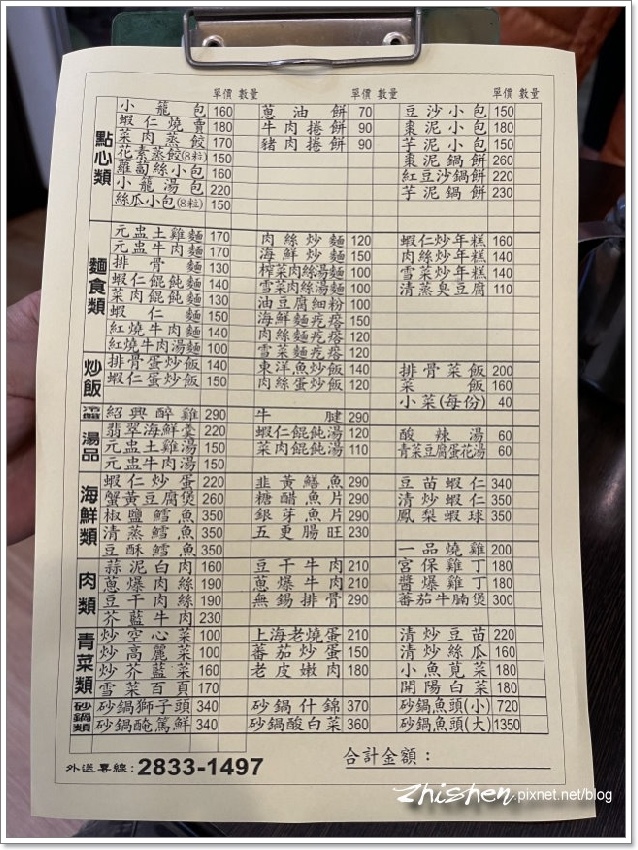 單價 數量 單價 數量 單價 數量
點心類
小籠包 160 蔥油餅 70 豆沙小包 150
蝦仁燒賣 180 牛肉捲餅 90 棗泥小包 180
菜肉蒸餃 170 豬肉捲餅 90 芋泥小包 150
花素蒸餃(8粒) 150 棗泥鍋餅 260
蘿蔔絲小包 160 紅豆沙鍋餅 220
小籠湯包 220 芋泥鍋餅 230
絲瓜小包(8粒) 150
麵食類
元盅土雞麵 170 肉絲炒麵 120 蝦仁炒年糕 160
元盅牛肉麵 170 海鮮炒麵 150 肉絲炒年糕 140
排骨麵 130 榨菜肉絲湯麵 100 雪菜炒年糕 140
蝦仁餛飩麵 140 雪菜肉絲湯麵 100 清蒸臭豆腐 110
菜肉餛飩麵 130 油豆腐細粉 100
蝦仁麵 150 海鮮麵疙瘩 150
紅燒牛肉麵 140 肉絲麵疙瘩 120
紅燒牛肉湯麵 100 雪菜麵疙瘩 120
炒飯
排骨蛋炒飯 140 東洋魚炒飯 140 排骨菜飯 200
蝦仁蛋炒飯 150 肉絲蛋炒飯 120 菜飯 160
小菜(每份) 40
冷盤
紹興醉雞 290 牛腱 290
湯品
翡翠海鮮羹 220 蝦仁餛飩湯 120 酸辣湯 60
元盅土雞湯 150 菜肉餛飩湯 110 青菜豆腐蛋花湯 60
元盅牛肉湯 150
海鮮類
蝦仁炒蛋 220 韭黃鱔魚 290 豆苗蝦仁 340
蟹黃豆腐煲 260 糖醋魚片 290 清炒蝦仁 350
椒鹽鱈魚 350 銀芽魚片 290 鳳梨蝦球 350
清蒸鱈魚 350 五更腸旺 230
豆酥鱈魚 350 一品燒雞 200
肉類
蒜泥白肉 160 豆干牛肉 210 宮保雞丁 180
蔥爆肉絲 190 蔥爆牛肉 210 醬爆雞丁 180
豆干肉絲 190 無錫排骨 290 蕃茄牛腩煲 300
芥藍牛肉 230
青菜類
炒空心菜 100 上海老燒蛋 210 清炒豆苗 220
炒高麗菜 100 蕃茄炒蛋 150 清炒絲瓜 160
炒芥藍菜 160 老皮嫩肉 180 小魚莧菜 180
雪菜百頁 170 開陽白菜 180
砂鍋類
砂鍋獅子頭 340 砂鍋什錦 370 砂鍋魚頭(小) 720
砂鍋醃篤鮮 340 砂鍋酸白菜 360 砂鍋魚頭(大) 1350
外送專線：2833-1497 合計金額：
zhishen.pixnet.net/blog